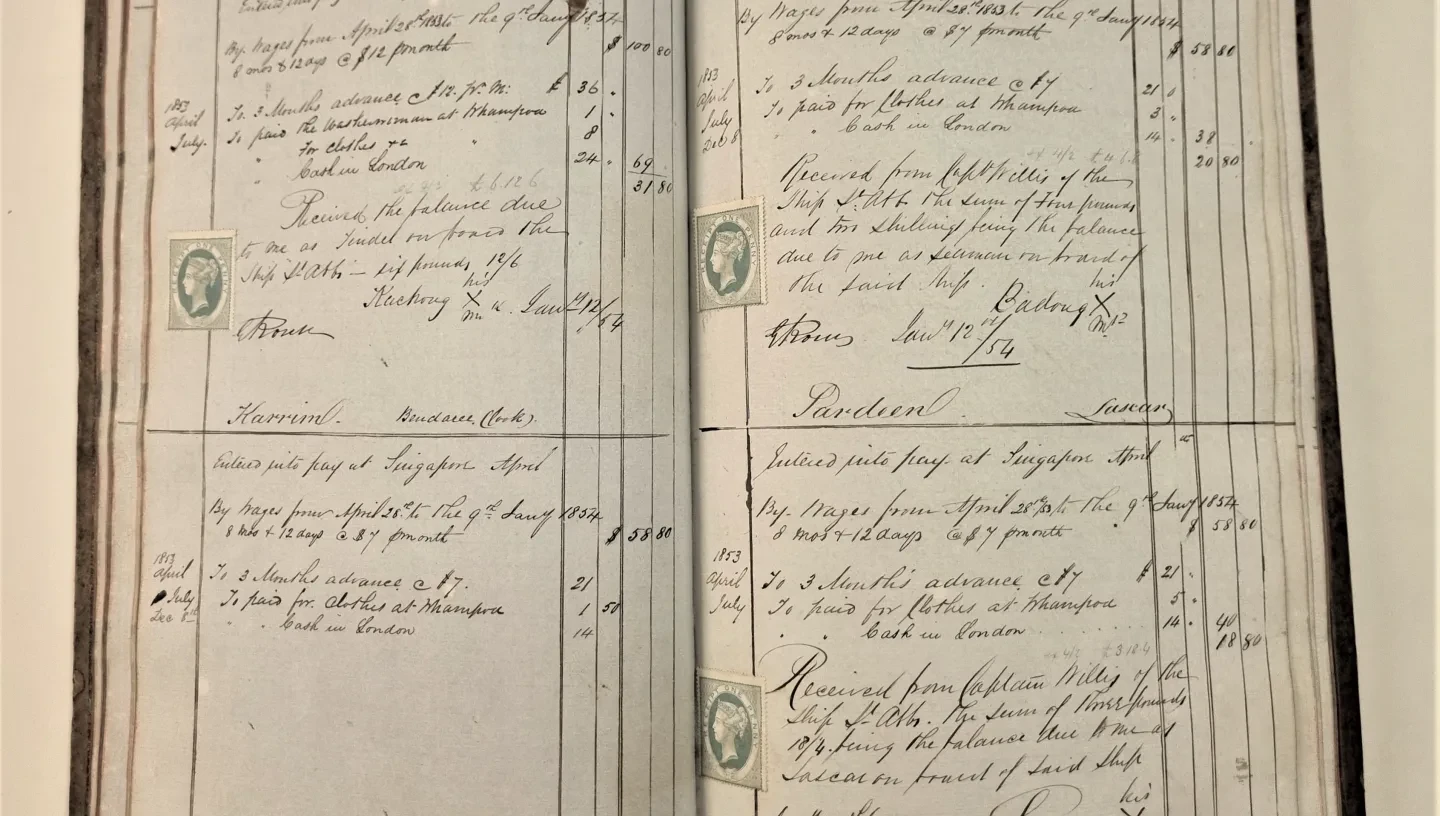 By Wages from April 28th 1853 to the 9th Jany 1854
8 mos & 12 days @ $12 p month $ 100 80
1853
April To 3 Months advance @ $12 pr. M: $ 36 "
July. To paid the washerwoman at Whampoa 1 "
" For clothes &c " 8
" Cash in London 24 " 69
31 80
@ 4/2 £6.12.6
Received the balance due
to me as Tindel on board the
Ship St Abbs — six pounds 12/6
his
Kachong X Jany 12/54
RECEIPT ONE PENNY
Karrim. Bendaree (Cook).
Entered into pay at Singapore April
By Wages from April 28th to the 9th Jany 1854
8 mos & 12 days @ $7 p month $ 58 80
1853
April To 3 Months advance @ $7. 21
July To paid for Clothes at Whampoa 1 50
Dec 8th " " Cash in London 14
By Wages from April 28th 1853 to the 9th Jany 1854
8 mos & 12 days @ $7 p month $ 58 80
1853
April To 3 Months advance @ $7 21 0
July To paid for Clothes at Whampoa 3 "
Dec 8 " Cash in London 14 " 38
20 80
@ 4/2
Received from Capt Willis of the
Ship St Abb the sum of Four pounds
and two shilling being the balance
due to me as seaman on board of
the said Ship. his
Badong X
Jany 12th/54
RECEIPT ONE PENNY
Pardeen. Lascar
Entered into pay at Singapore April
By Wages from April 28th/53 to the 9th Jany 1854
8 mos & 12 days @ $7 p month " $ 58 80
1853
April To 3 Month's advance @ $7 $ 21 "
July To paid for Clothes at Whampoa 5 "
" " Cash in London . . . . . . . 14 " 40
18 80
@ 4/2 £3.18.4
Received from Captain Willis of the
Ship St Abbs. the sum of three pounds
18/4. being the balance due to me as
Lascar on board of said Ship
his
RECEIPT ONE PENNY